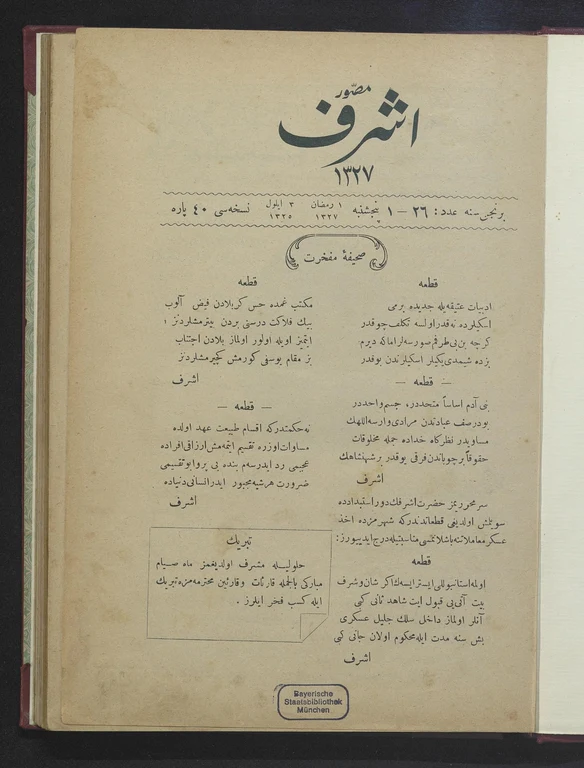 مصوّر
اشرف
١٣٢٧
برنجى سنه عدد: ٢٦ — ١ پنجشنبه ١ رمضان ١٣٢٧ ٣ ايلول ١٣٢٥ نسخه‌سى ٤٠ پاره
صحيفۀ مفخرت
قطعه
ادبيات عتيقه‌يله جديده برمى
اسكيلرده نه قدر اولسه تكلف چوقدر
كرچه بن بى طرفم صورسه‌لر اما كه ديرم
بزده شيمديكيلر اسكيلرندن يوقدر
— قطعه —
بنى آدم اساساً متحددر، جسم واحددر
بودر صف عبادتدن مرادى وار سه اللهك
مساويدر نظركاه خداده جمله مخلوقات
حقوقاً بر چوباندن فرقى يوقدر بر شهنشاهك
اشرف
سر محررمز حضرت اشرفك دور استبدادده
سويلمش اولديغى قطعاتدندركه شهرمزده اخذ
عسكر معاملاتنه باشلانمسى مناسبتيله درج ايدييورز:
قطعه
اوله استانبوللى ايستر ايسه‌ك اكر شان و شرف
بيت آتى‌يى قبول ايت شاهد ثانى كبى
آنلر اولماز داخل سلك جليل عسكرى
بش سنه مدت ايله محكوم اولان جانى كبى
اشرف
قطعه
مكتب غمده حس كربلادن فيض آلوب
بيك فلاكت درسنى بردن بيتيرمشلردنز؛
ايتميز اويله اولور اولماز بلادن اجتناب
بز مقام يوسفى كورمش كچيرمشلردنز
اشرف
— قطعه —
نه حكمتدركه اقسام طبيعت عهد اولده
مساوات اوزره تقسيم ايتمه‌مش ارزاقى افراده
عجبمى رد ايدرسه‌م بنده بى پروا بو تقسيمى
ضرورت هر شيئه مجبور ايدر انسانى دنياده
اشرف
تبريك
حلوليله مشرف اولديغمز ماه صيام
مباركى بالجمله قارئات و قارئين محترمه‌مزه تبريك
ايله كسب فخر ايلرز.
Bayerische
Staatsbibliothek
München